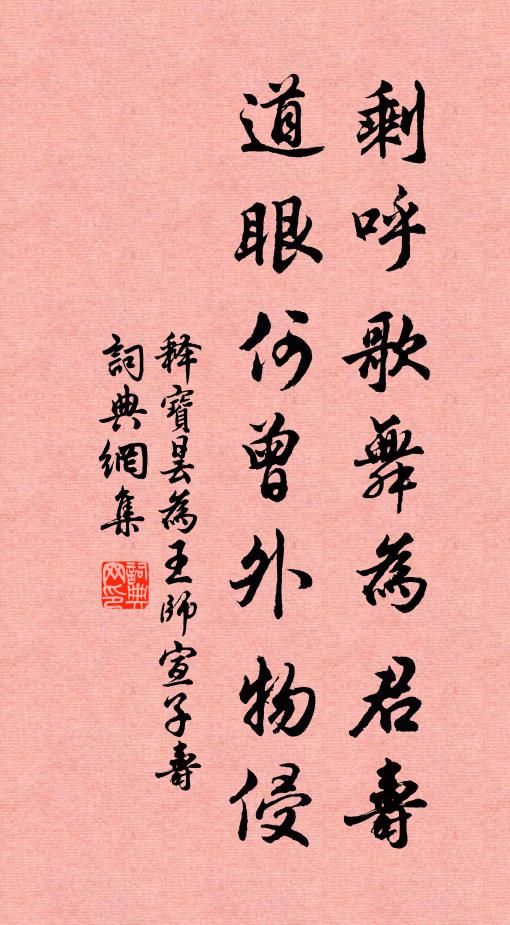 剩呼歌舞為君壽
道眼何曾外物侵
释寶曇為王師宣子壽
詞典網集
詞典
网印